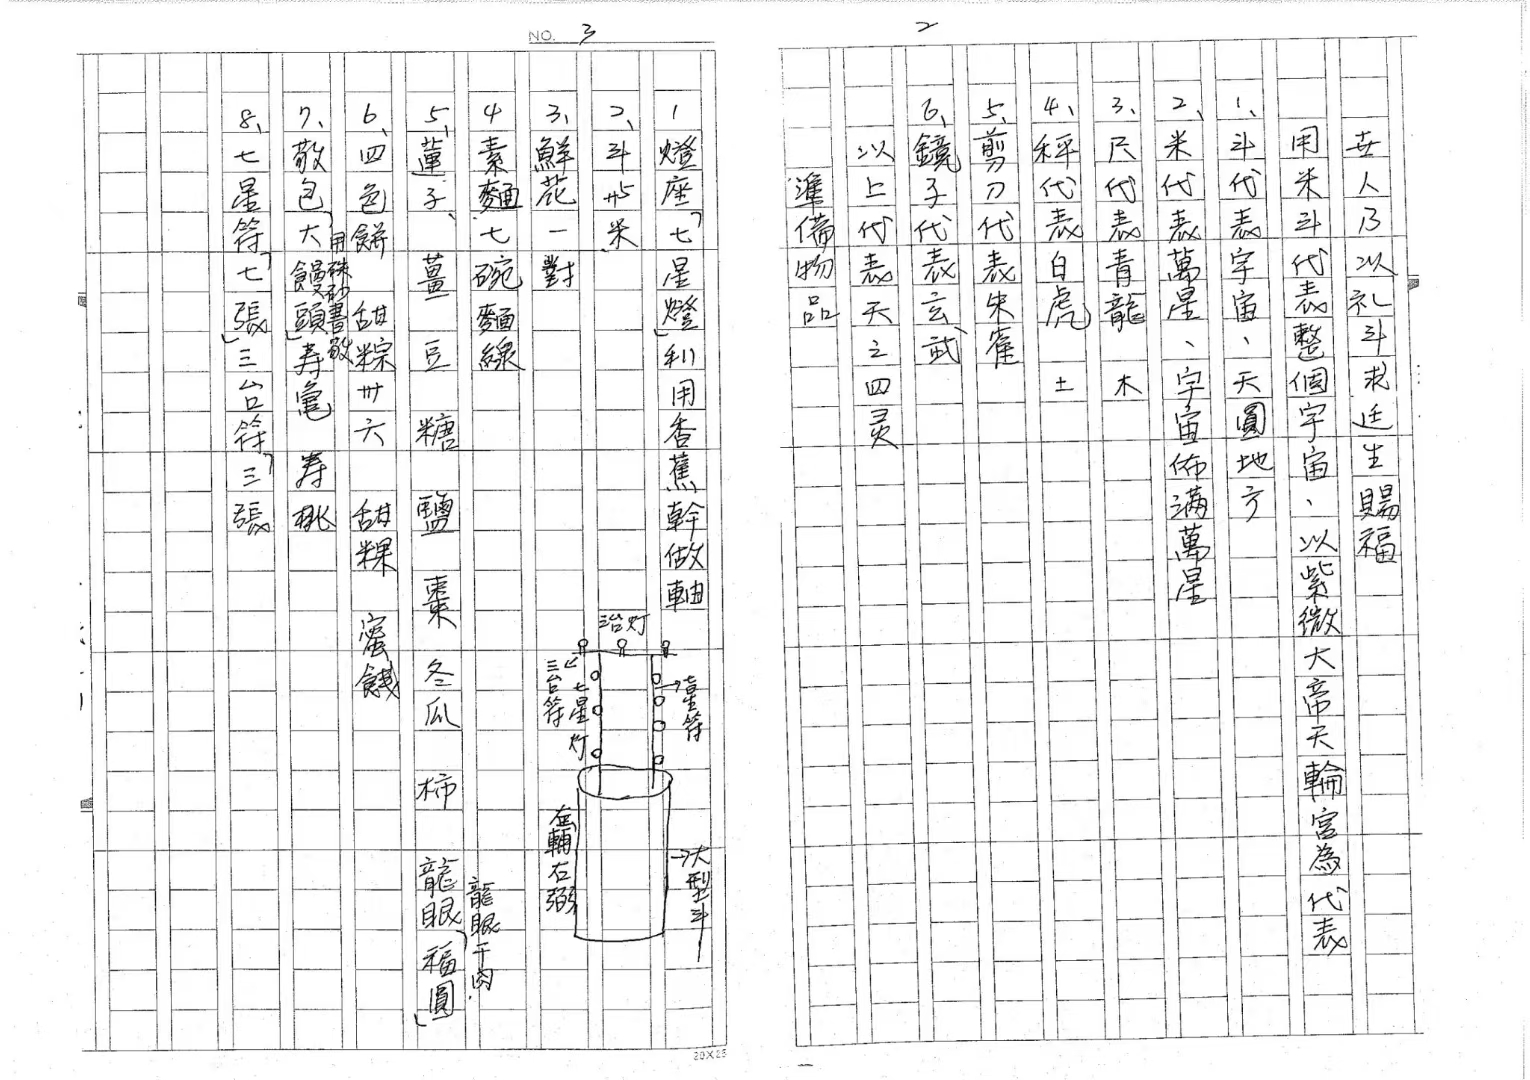 2
世人乃以礼斗求延生賜福
用米斗代表整個宇宙、以紫微大帝天輪宮為代表
1、斗代表宇宙、天圓地方
2、米代表萬星、宇宙佈滿萬星
3、尺代表青龍 木
4、秤代表白虎 土
5、剪刀代表朱雀
6、鏡子代表玄武
以上代表天之四灵
準備物品
NO. 3
1 燈座「七星燈」利用香蕉幹做軸
2、斗 米
3、鮮花一對
4 素麵七碗 麵線
5、蓮子、薑 豆 糖 鹽 棗 冬瓜 柿 龍眼「福圓」
龍眼干肉
6、四包餅 甜粽卅六 甜粿 蜜餞
用硃砂書敬
7、敬包「大饅頭」寿龜 寿桃
8、七星符「七張」三台符「三張
三台灯
三台符
七星灯
七星符
左輔右弼
大型斗
20X25